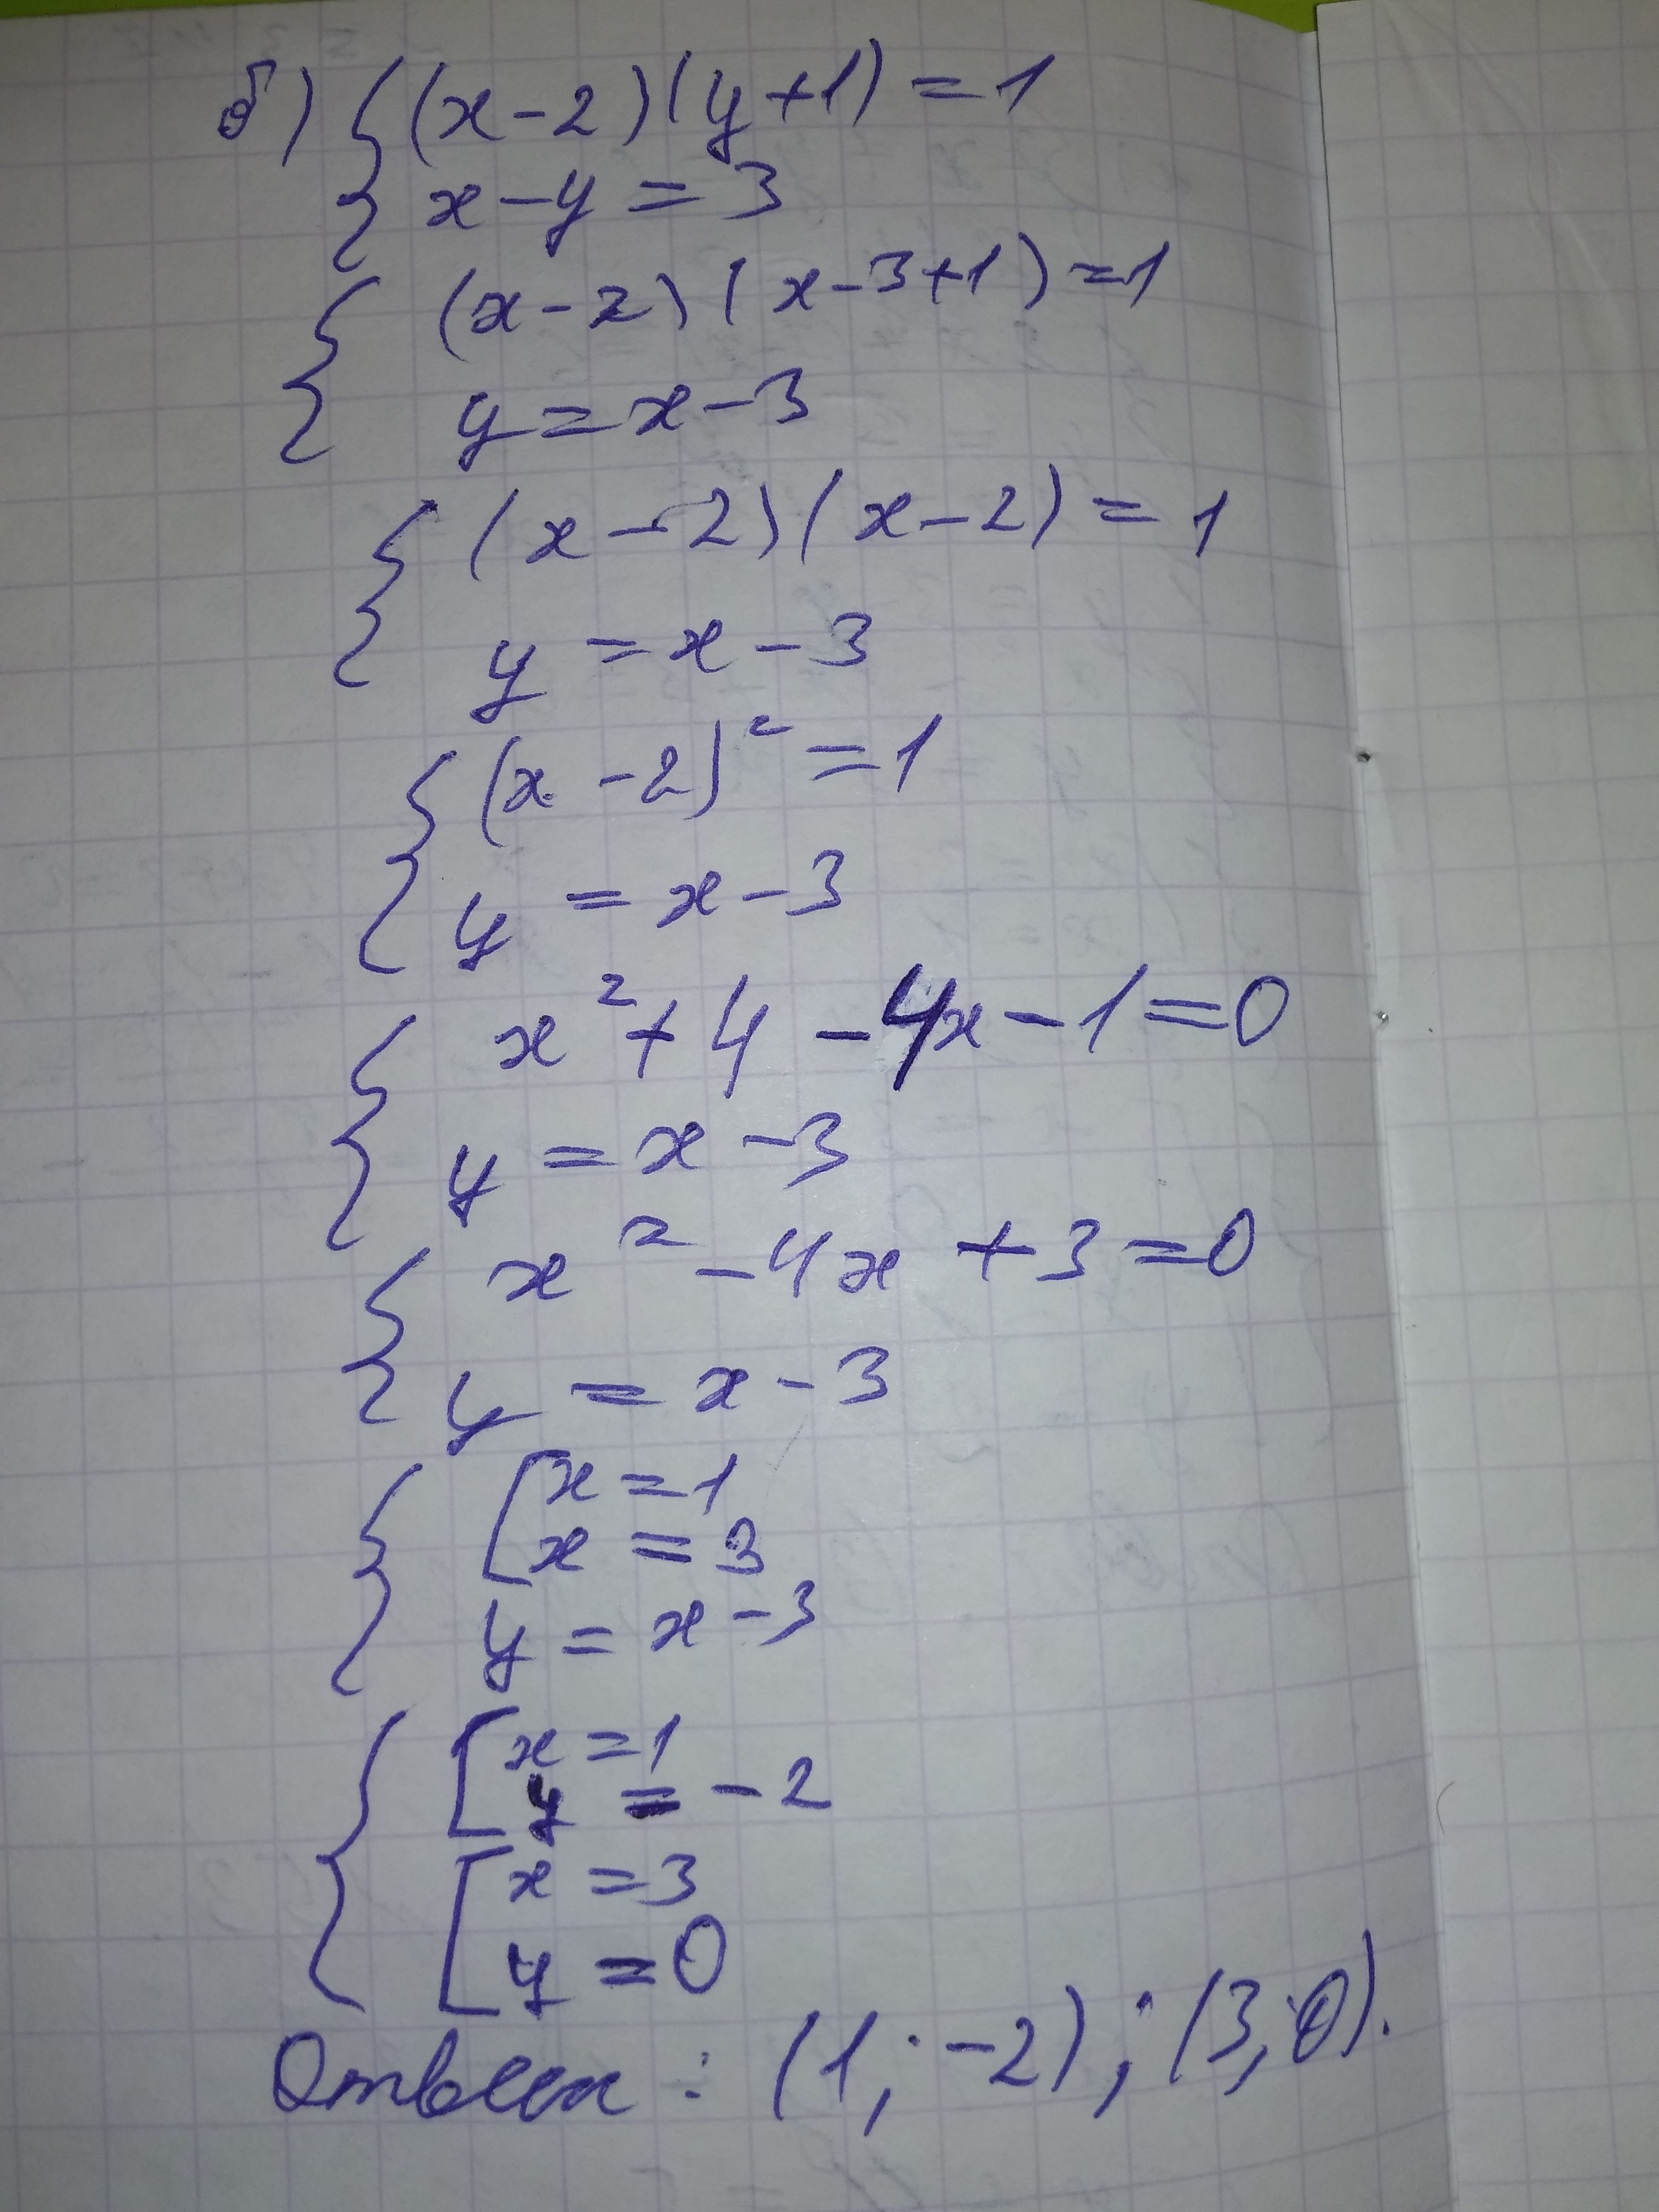 б) { (x-2)(y+1)=1
x-y=3
{ (x-2)(x-3+1)=1
y=x-3
{ (x-2)(x-2)=1
y=x-3
{ (x-2)²=1
y=x-3
{ x²+4-4x-1=0
y=x-3
{ x²-4x+3=0
y=x-3
{ [ x=1
x=3
y=x-3
{ [ x=1
y=-2
[ x=3
y=0
Ответ: (1;-2);(3;0).